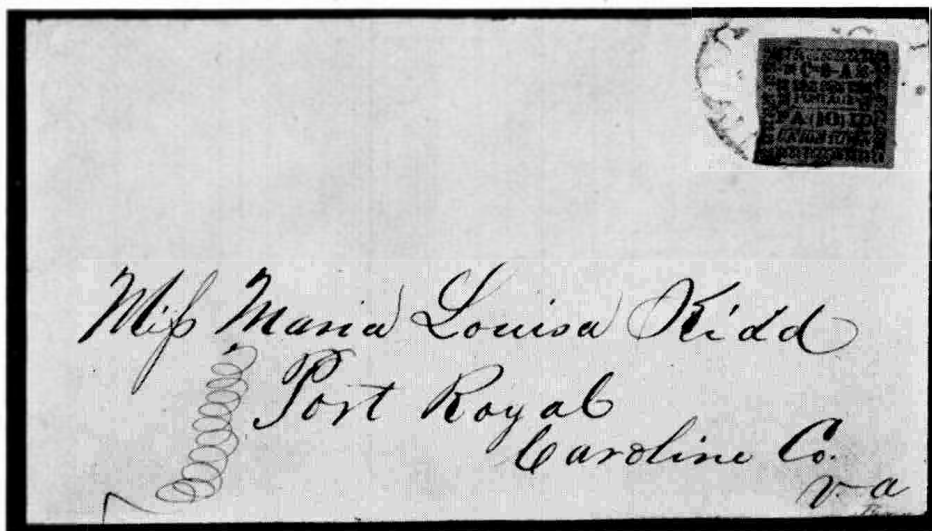 C·S·A
PAID
10
Miſs Maria Louisa Kidd
Port Royal
Caroline Co.
Va